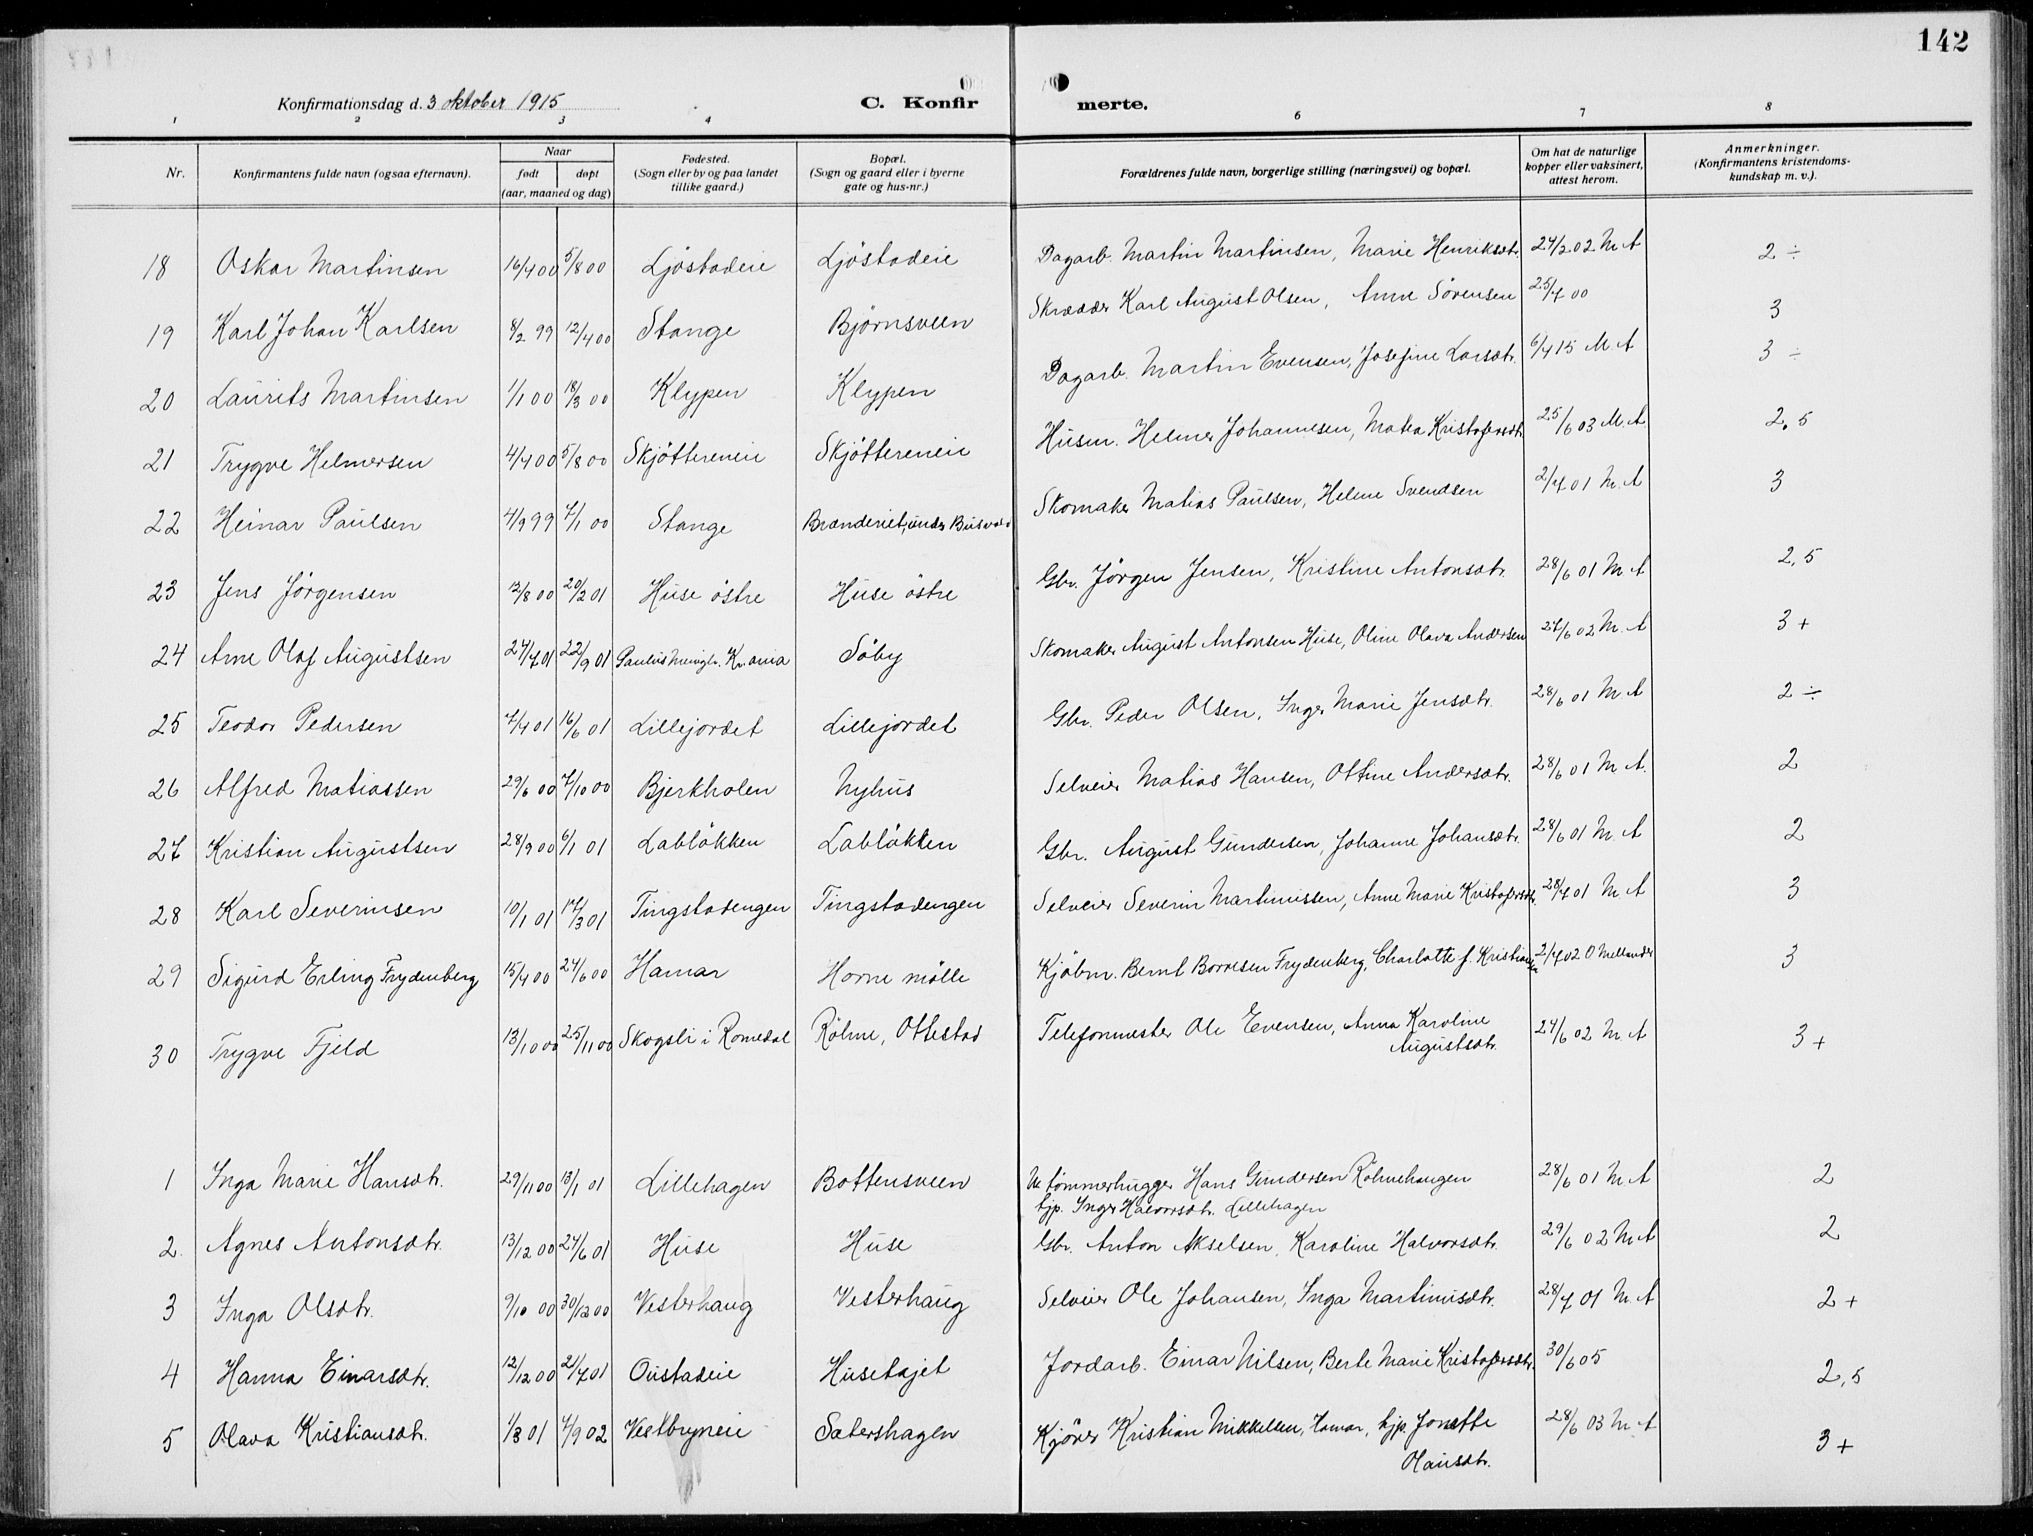 142
Konfirmationsdag d. 3 oktober 1915
C. Konfir merte.
1 2 3 4 6 7 8
Nr. Konfirmantens fulde navn (ogsaa efternavn). Naar født døpt (aar, maaned og dag) Fødested. (Sogn eller by og paa landet tillike gaard.) Bopæl. (Sogn og gaard eller i byerne gate og hus-nr.) Forældrenes fulde navn, borgerlige stilling (næringsvei) og bopæl. Om hat de naturlige kopper eller vaksinert, attest herom. Anmerkninger. (Konfirmantens kristendoms-kundskap m. v.).
18 Oskar Martinsen 16/4 00 5/8 00 Ljöstadeie Ljöstadeie Dagarb. Martin Martinsen, Marie Henriksdtr. 24/2 02 M A 2 ÷
19 Karl Johan Karlsen 8/2 99 12/4 00 Stange Björnsveen Skrædder Karl August Olsen, Anne Sörensen 25/7 00 3
20 Laurits Martinsen 1/1 00 18/3 00 Klypen Klypen Dagarb. Martin Evensen, Josefine Larsdtr. 6/4 15 M. A 3 ÷
21 Trygve Helmersen 4/4 00 5/8 00 Skjöttereneie Skjöttereneie Husm. Helmer Johannesen, Matea Kristofersdtr. 25/6 03 M. A 2,5
22 Heinar Paulsen 4/9 99 7/1 00 Stange Brænderiet, under Busvold Skomaker Matias Paulsen, Helene Svendsen 2/7 01 M. A 3
23 Jens Jörgensen 12/8 00 20/2 01 Huse östre Huse östre Gbr. Jörgen Jensen, Kristine Antonsdtr. 28/6 01 M A 2,5
24 Arne Olaf Augustsen 24/7 01 22/9 01 Paulus menigh. Kr.ania Söby Skomaker August Antonsen Huse, Oline Olava Andersen 27/6 02 M. A 3 +
25 Teodor Pedersen 7/4 01 16/6 01 Lillejordet Lillejordet Gbr. Peder Olsen, Inger Marie Jensdtr. 28/6 01 M A 2 ÷
26 Alfred Matiassen 29/6 00 7/10 00 Bjerkholen Nyhus Selveier Matias Hansen, Ottine Andersdtr. 28/6 01 M A. 2
27 Kristian Augustsen 28/9 00 6/1 01 Lablökken Lablökken Gbr. August Gundersen, Johanne Johansdtr. 28/6 01 M. A 2
28 Karl Severinsen 10/1 01 17/3 01 Tingstadengen Tingstadengen Selveier Severin Martinussen, Anne Marie Kristofersdtr. 28/7 01 M A 3
29 Sigurd Erling Frydenberg 15/4 00 24/6 00 Hamar Horne mölle Kjöbm. Bernt Borresen Frydenberg, Charlotte f. Kristiansen 2/7 02 O Mellander 3
30 Trygve Fjeld 13/10 00 25/11 00 Skogsli i Romedal Röhne, Ottestad Telefonmester Ole Evensen, Anna Karoline Augustsdtr. 24/6 02 M A 3 +
1 Inga Marie Hansdtr. 29/11 00 13/1 01 Lillehagen Bottensveen Ue tömmerhugger Hans Gundersen Röhnehaugen 28/6 01 M. A 2
tjp. Inger Halvorsdtr. Lillehagen
2 Agnes Antonsdtr. 13/12 00 24/6 01 Huse Huse Gbr. Anton Akselsen, Karoline Halvorsdtr. 29/6 02 M A 2
3 Inga Olsdtr. 9/10 00 30/12 00 Vesterhaug Vesterhaug Selveier Ole Johansen, Inga Martinusdtr. 28/7 01 M. A 2 +
4 Hanna Einarsdtr. 12/12 00 21/7 01 Oustadeie Husetajet Jordarb. Einar Nilsen, Berte Marie Kristofersdtr. 30/6 05 2,5
5 Olava Kristiansdtr. 1/3 01 7/9 02 Vestbyneie Sætershagen Kjörer Kristian Mikkelsen, Hamar, tjp. Jonette Olausdtr. 28/6 03 M. A 3 +